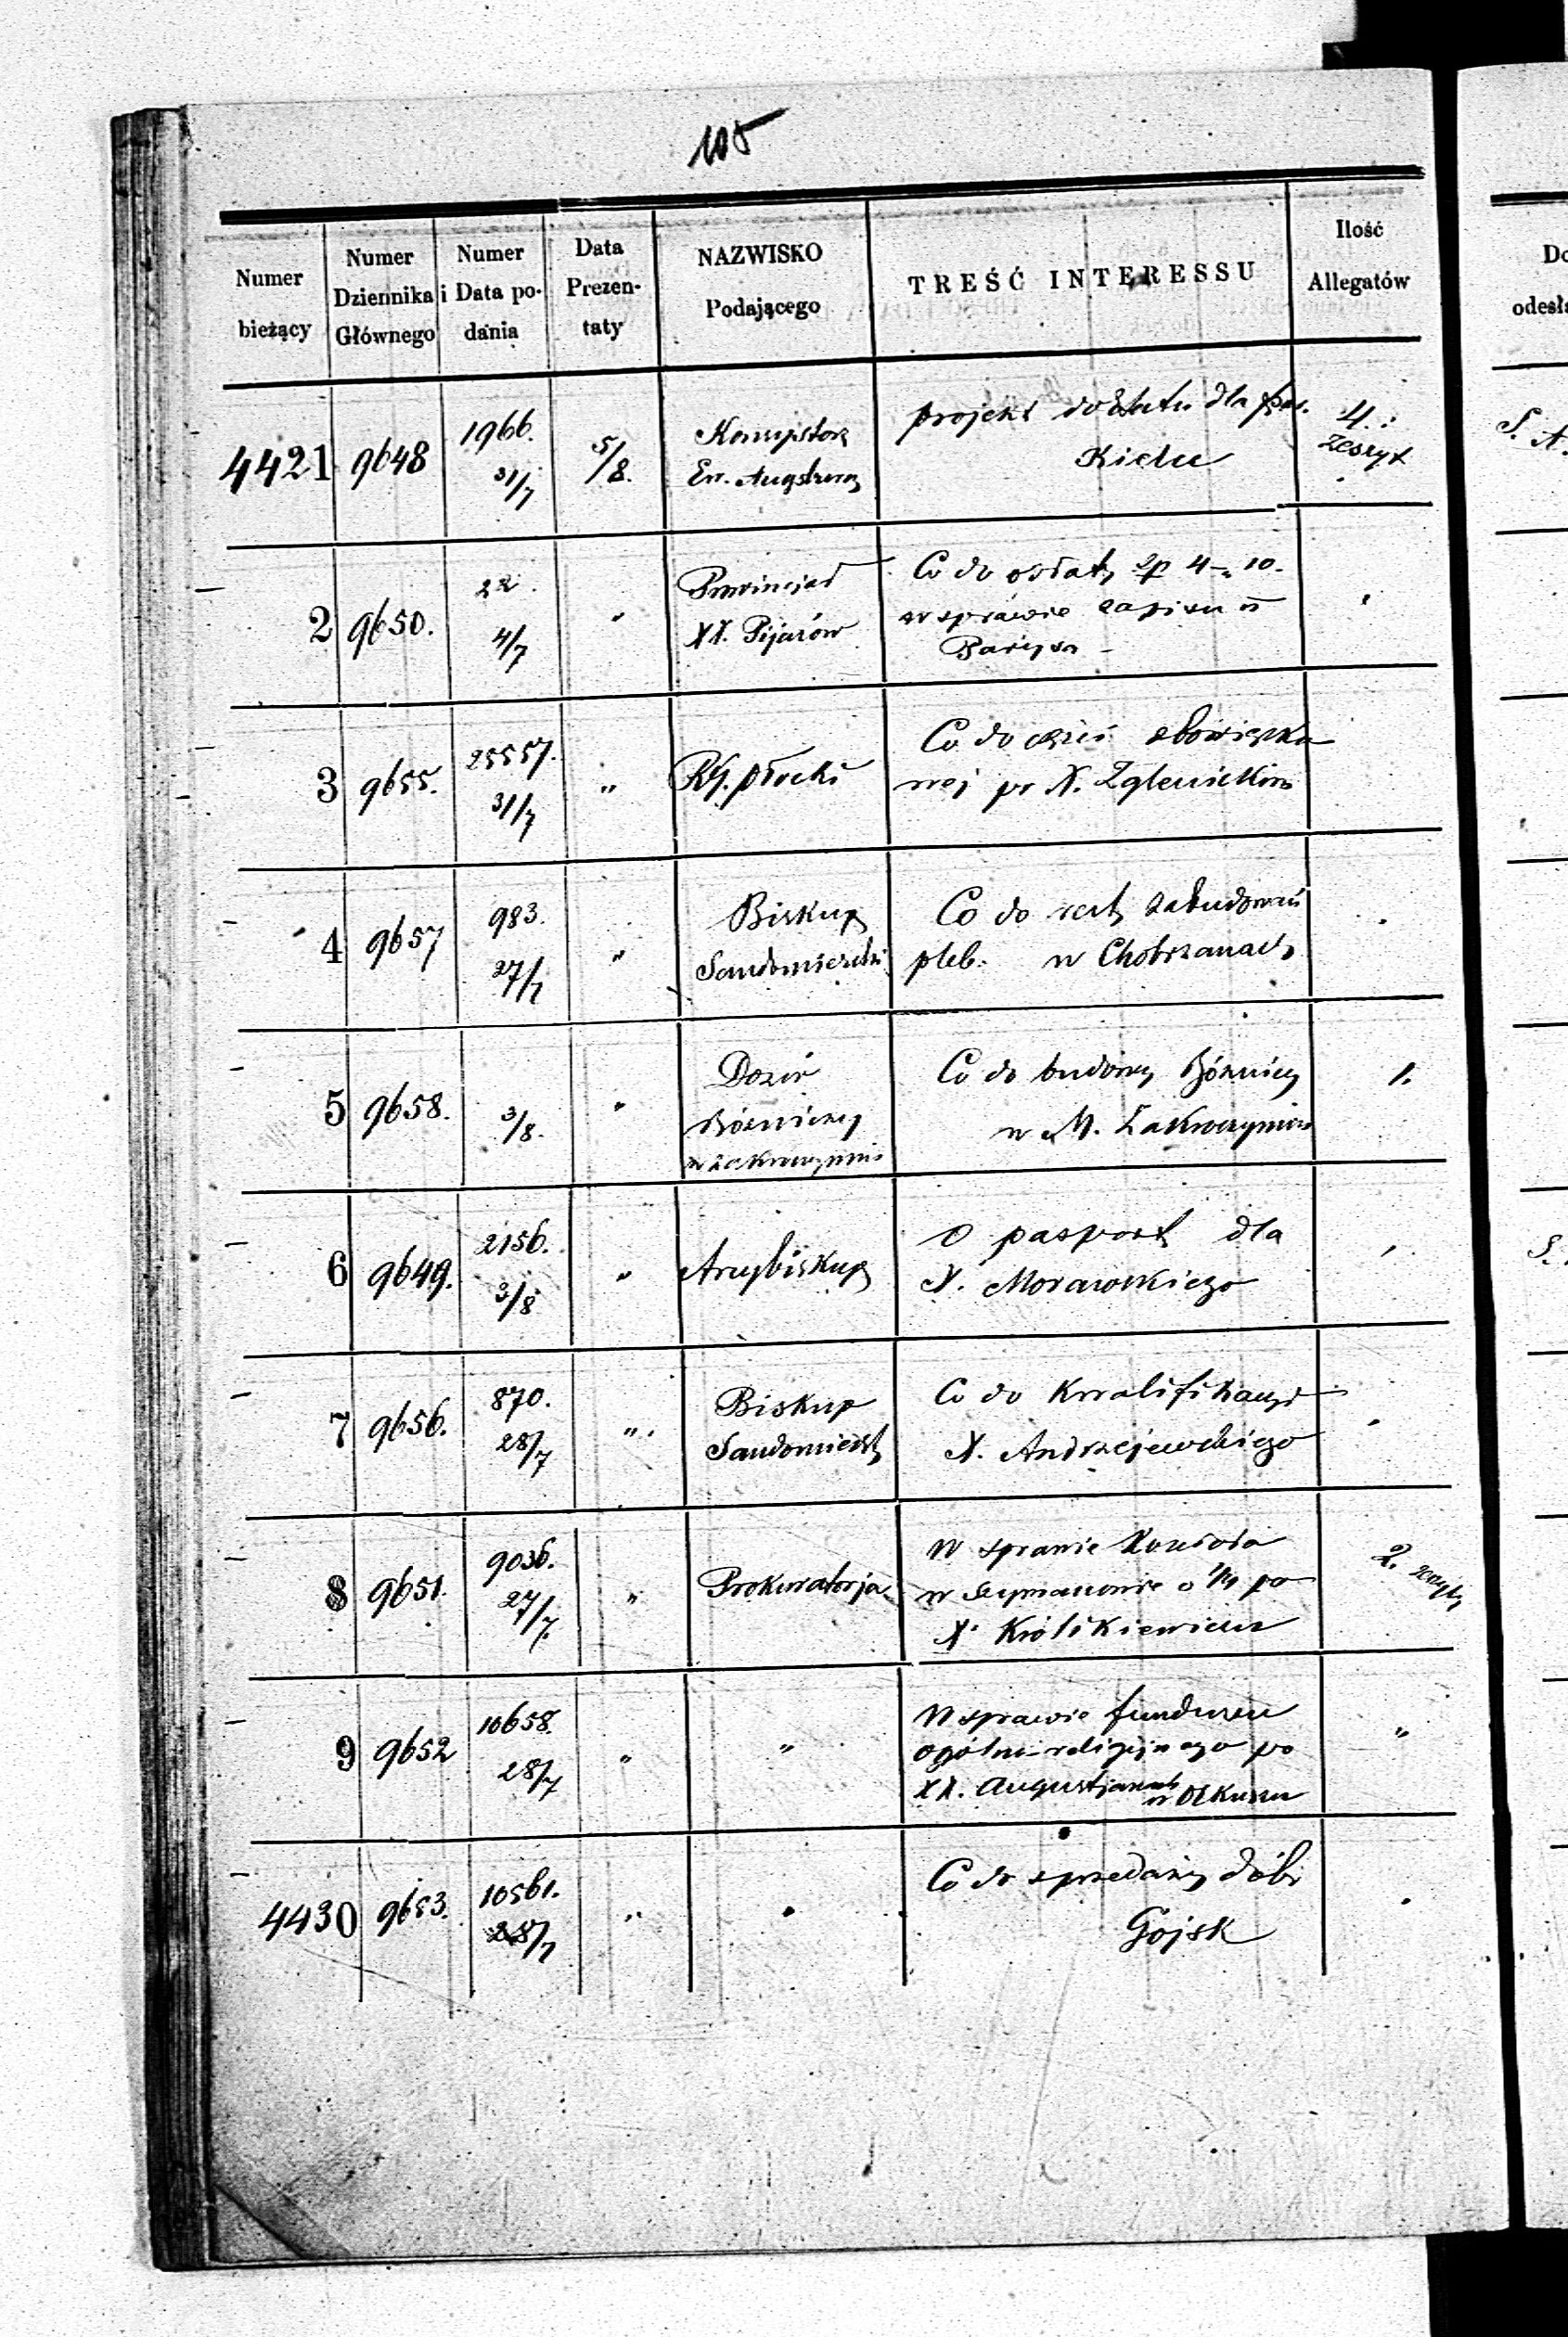 105
Numer bieżący | Numer Dziennika Głównego | Numer i Data podania | Data Prezentaty | NAZWISKO Podającego | TREŚĆ INTERESSU | Ilość Allegatów
4421 | 9648 | 1966. 31/7 | 5/8. | Konsystorz Ew. Augsburg | projekt dla Kielu | 4. zeszyt
2 | 9650. | 22. 4/7 | " | Prowincjał XX. Pijarów | Co do w sprawie zapisu
3 | 9655. | 25557. 31/7 | " | RG. płocki | Co do obowiązkowej po X. Zglenickim
4 | 9657 | 983. 27/7 | " | Biskup Sandomierski | Co do zabudowań pleb. w Chobrzanach
5 | 9658. | 3/8. | " | Dozór Bóżniczy w Zakroczymiu | Co do budowy Bóżnicy w M. Zakroczymiu | 1.
6 | 9649. | 2156. 3/8 | " | Arcybiskup | O pasport dla X. Morawskiego
7 | 9656. | 870. 28/7 | " | Biskup Sandomierski | Co do kwalifikacyi X. Andrzejewskiego
8 | 9651. | 9036. 27/7. | " | Prokuratorja | W sprawie Kościoła w Szymanowie o 1/4 po X. Królikiewiczu | 2. zeszyty
9 | 9652 | 10658. 28/7 | " | " | W sprawie funduszu ogólno-religijnego po XX. Augustjanach w Olkuszu | "
4430 | 9653. | 10561. 28/7 | " | " | Co do sprzedaży dóbr Gójsk
S. A.